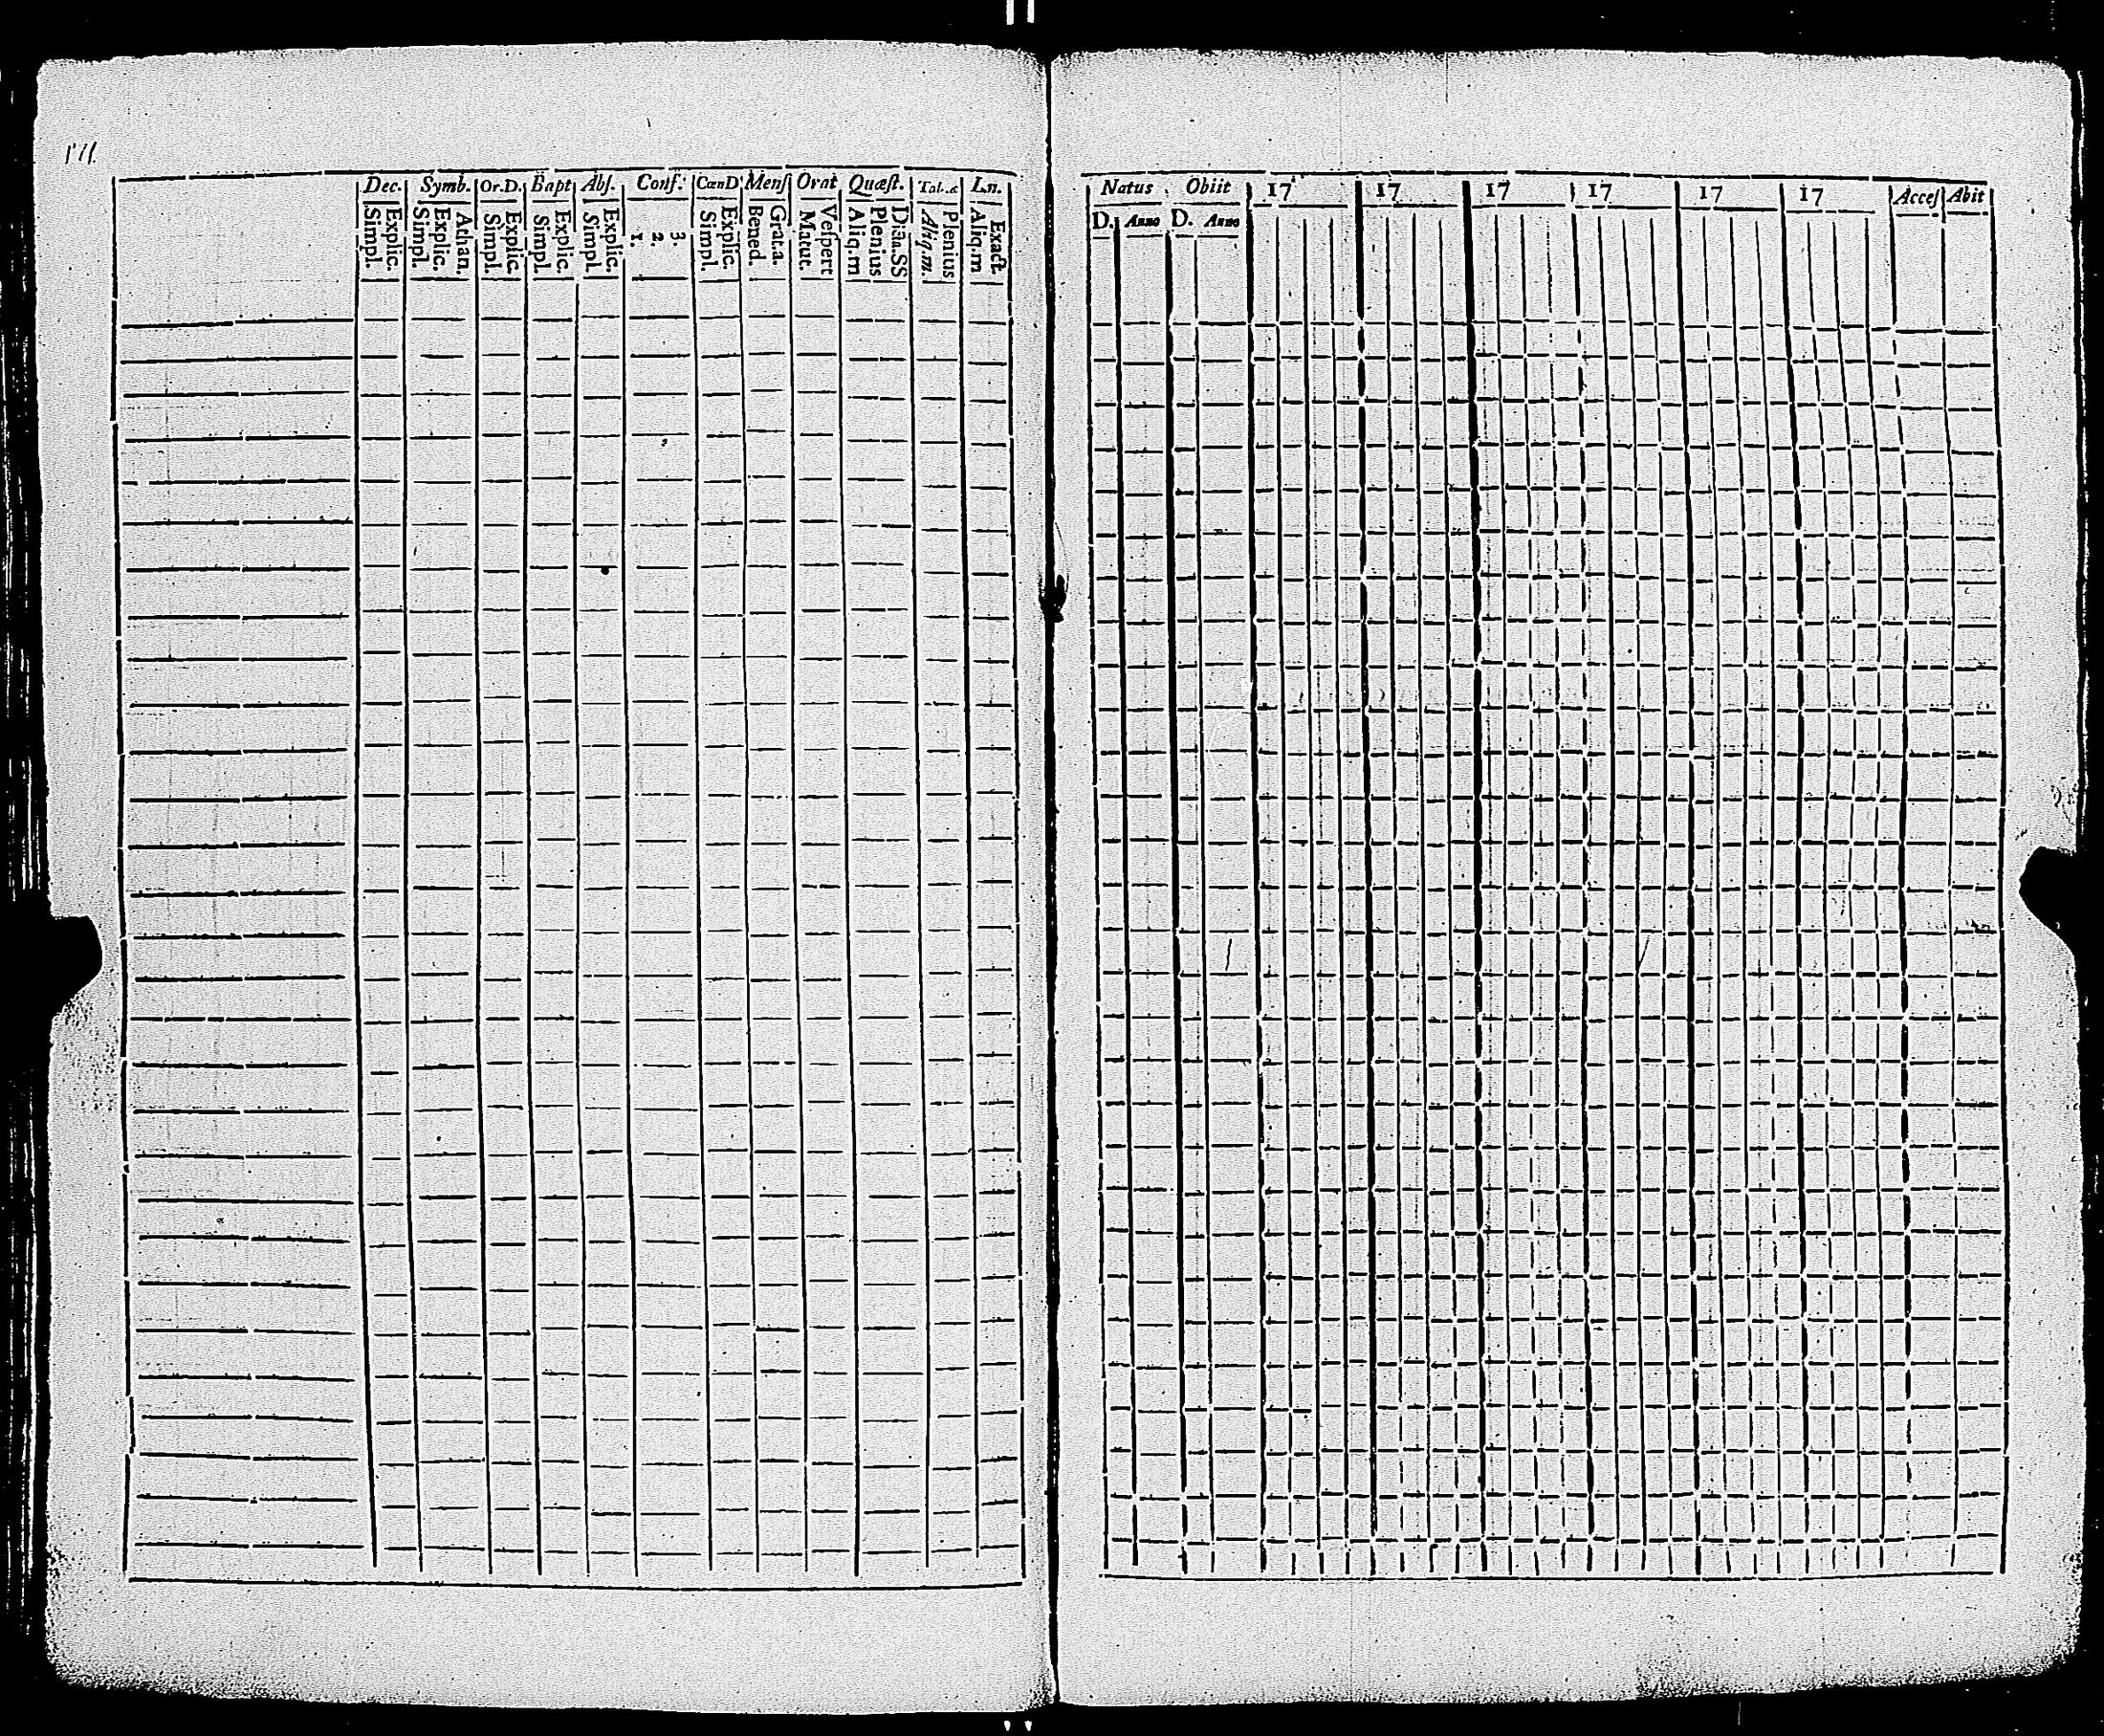 Dec. Symb. Or.D. Bapt Abſ. Conf. CœnD Menſ Orat Quæſt. Ln.
Simpl. Explic. Simpl. Explic. Athan. Simpl. Explic. Simpl. Explic. Simpl. Explic. 1. 2. 3. Simpl. Explic. Bened. Grat.a. Matut. Veſpert Aliq.m Plenius Aliq.m. Plenius Aliq.m Exact.
Natus Obiit 17 17 17 17 17 17 Acceſ Abit
D. Anno D. Anno